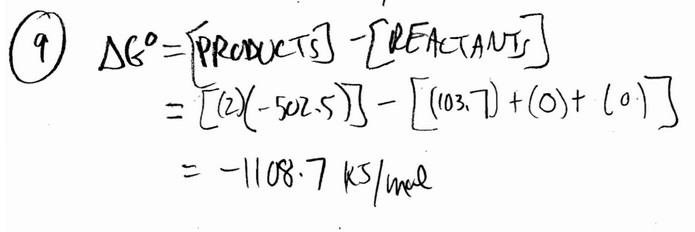 9 ΔG° = [PRODUCTS] - [REACTANTS]
= [(2)(-502.5)] - [(103.7) + (0) + (0)]
= -1108.7 KJ/mol